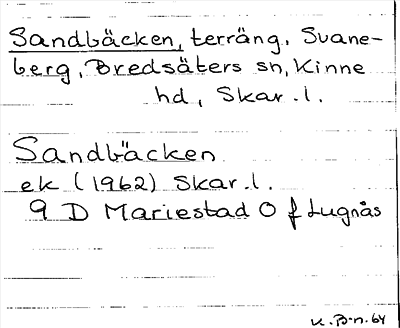 Sandbäcken, terräng. Svane-
berg, Bredsäters sn, Kinne
hd, Skar.l.
Sandbäcken
ek (1962) Skar.l.
9 D Mariestad O f Lugnås
K.B-n.64